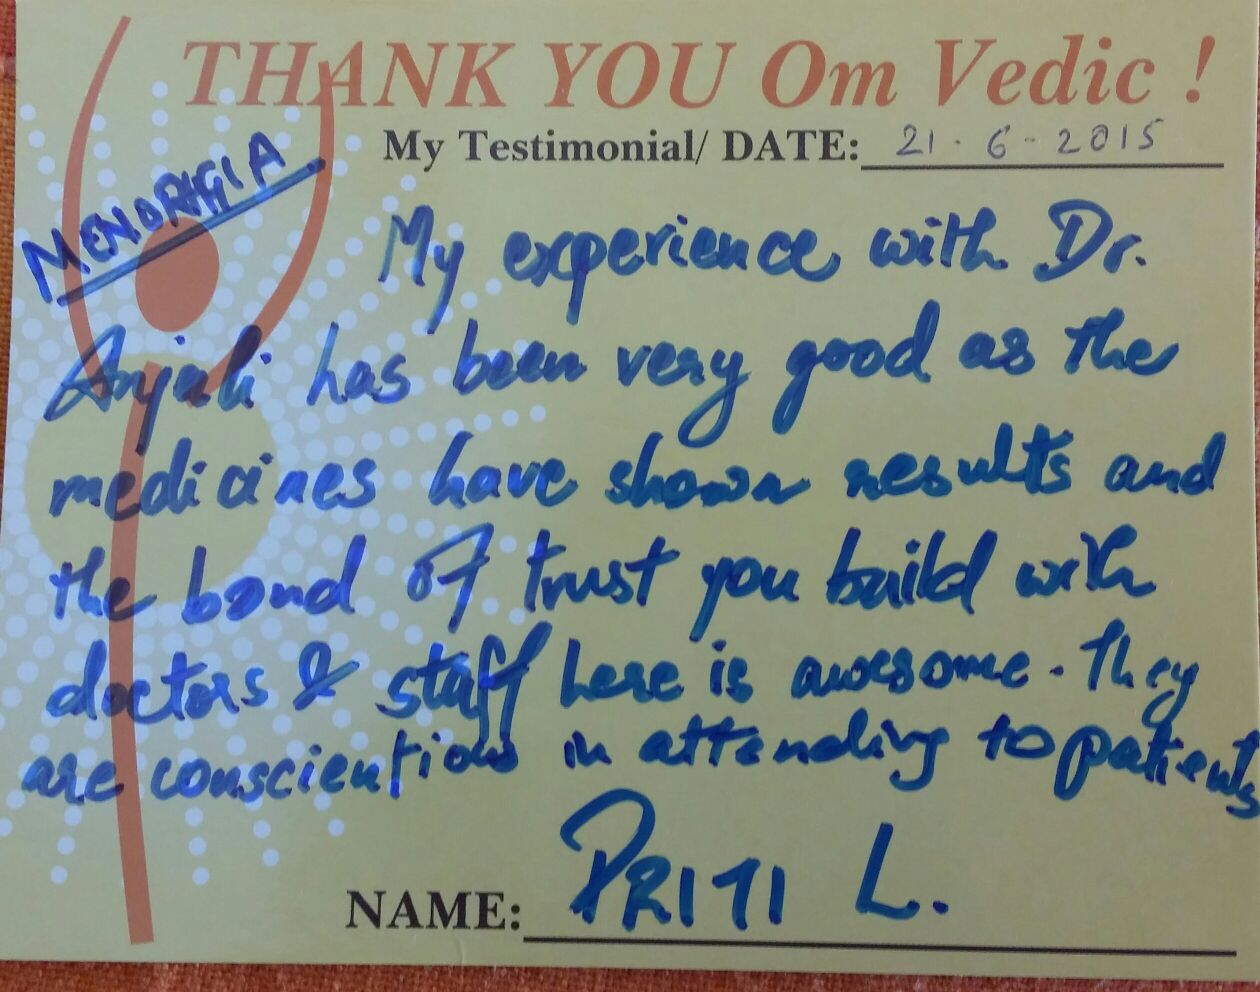 THANK YOU Om Vedic !
My Testimonial/ DATE: 21-6-2015
MENORHGIA
My experience with Dr.
Anjali has been very good as the
medicines have shown results and
the bond of trust you build with
doctors & staff here is awesome. They
are conscientious in attending to patients
NAME: PRITI L.